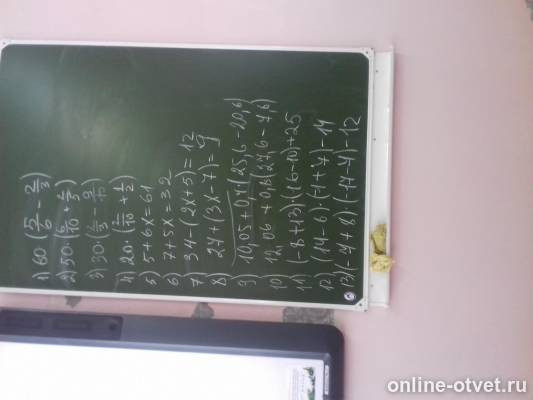 1) 60·(5/6 - 2/3)
2) 50·(6/10 + 1/5)
3) 30·(2/3 - 9/15)
4) 20·(7/10 + 1/2)
5) 5+6x=61
6) 7+5x=32
7) 34-(2x+5)=12
8) 24+(3x-7)=9
9) 10,05+0,4·(25,6-20,6)
10) 12,06+0,8(27,6-7,6)
11) (-8+13)·(16-10)+25
12) (14-6)·(1+7)-14
13) (-4+8)·(14-4)-12
online-otvet.ru